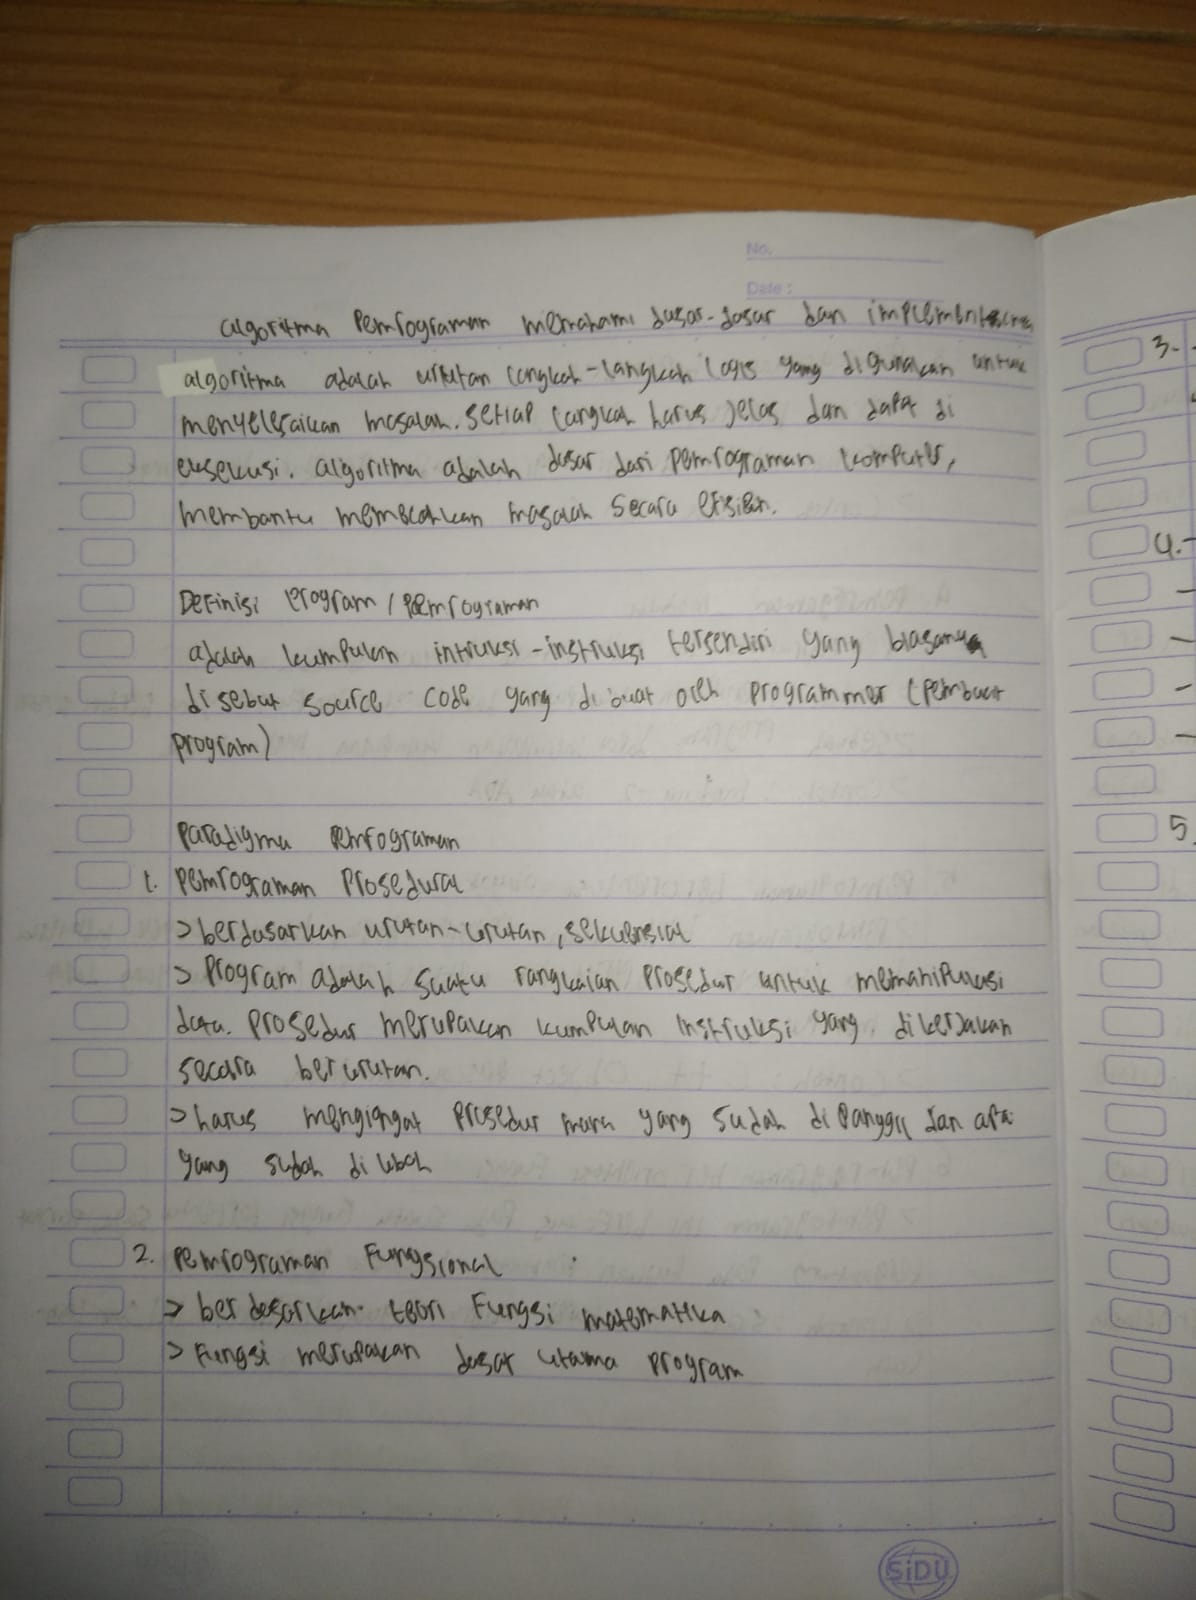 No.
Date :
algoritma Pemrograman memahami dasar-dasar dan
algoritma adalah urutan langkah-langkah logis yang digunakan untuk
menyelesaikan masalah. setiap langkah harus jelas dan dapat di
eksekusi. algoritma adalah dasar dari pemrograman komputer,
membantu memecahkan masalah secara efisien.
Definisi Program / Pemrograman
adalah kumpulan intruksi-instruksi tersendiri yang biasanya
disebut source code yang dibuat oleh programmer (pembuat
program)
Paradigma Pemrograman
1. Pemrograman Prosedural
> berdasarkan urutan-urutan, sekuensial
> Program adalah suatu rangkaian prosedur untuk memanipulasi
data. Prosedur merupakan kumpulan instruksi yang dikerjakan
secara berurutan.
> harus mengingat prosedur mana yang sudah dipanggil dan apa
yang sudah di ubah
2. Pemrograman Fungsional
> berdasarkan teori Fungsi matematika
> Fungsi merupakan dasar utama program
3.
4.
5.
SiDU